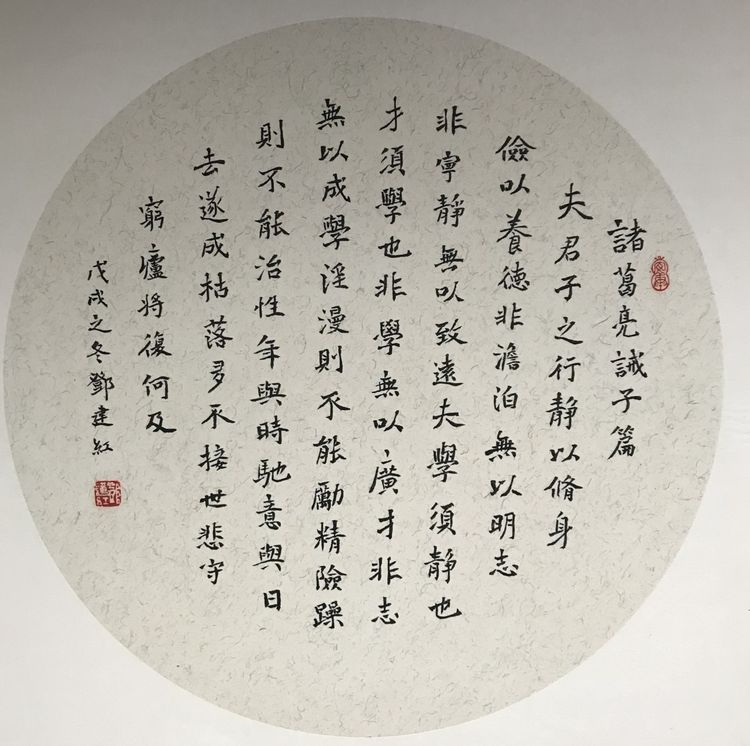 諸葛亮誡子篇
夫君子之行静以脩身
儉以養德非澹泊無以明志
非寧静無以致遠夫學須静也
才須學也非學無以廣才非志
無以成學淫漫則不能勵精險躁
則不能治性年與時馳意與日
去遂成枯落多不接世悲守
窮廬將復何及
戊戌之冬鄧建紅